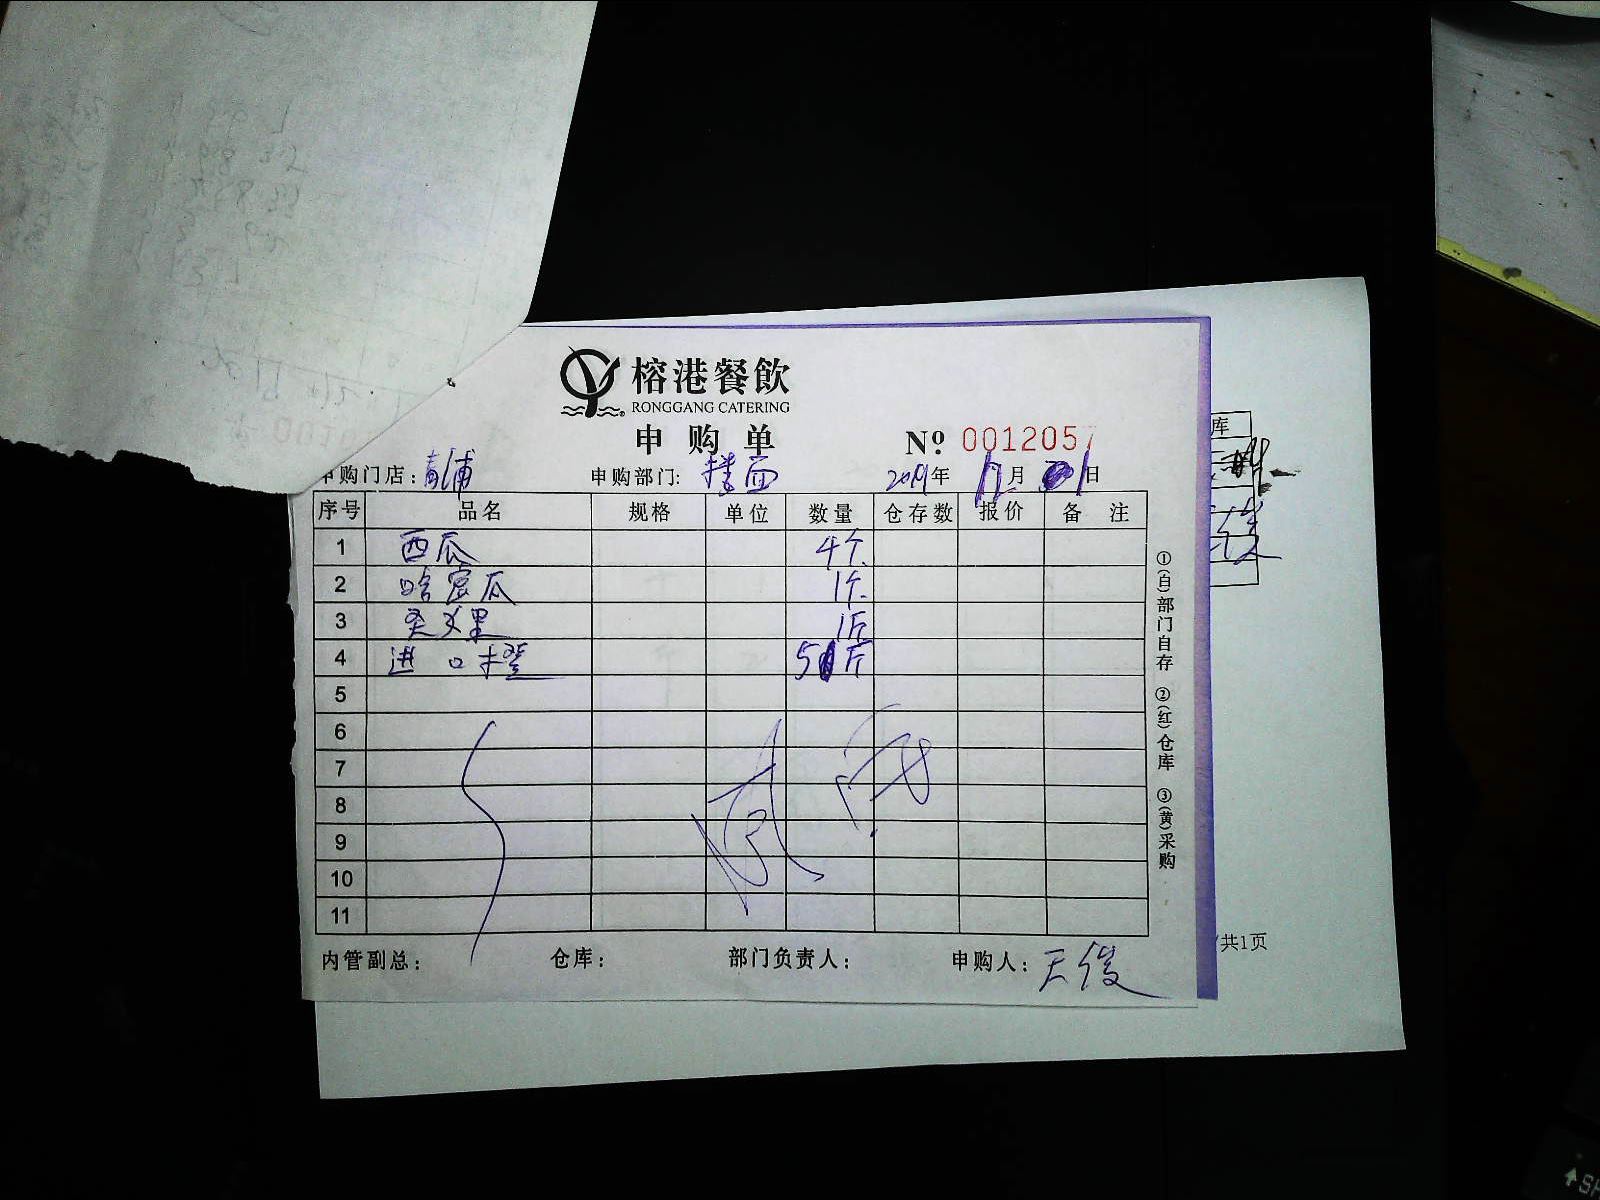 榕港餐飲
RONGGANG CATERING
申购单
№ 0012057
申购门店: 黄浦 申购部门: 楼面 2019年 12月 1日
序号 品名 规格 单位 数量 仓存数 报价 备注
1 西瓜 4个
2 哈密瓜 1个
3 圣女果 1斤
4 进口橙 5斤
5
6
7
8
9
10
11
内管副总: 仓库: 部门负责人: 申购人:
①(白)部门自存 ②(红)仓库 ③(黄)采购
库
共1页